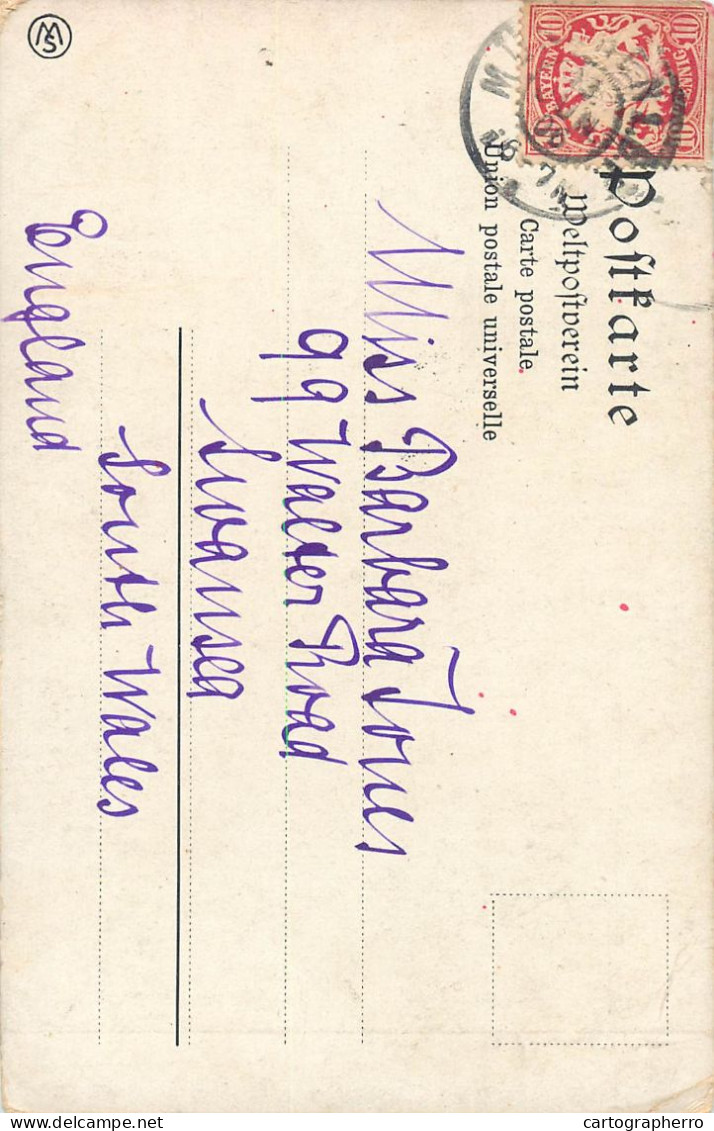 Postkarte
Weltpostverein
Carte postale.
Union postale universelle
10 BAYERN 10
Miss Barbara Jones
99 Walter Road
Swansea
South Wales
England
MS
delcampe.net
cartographerro